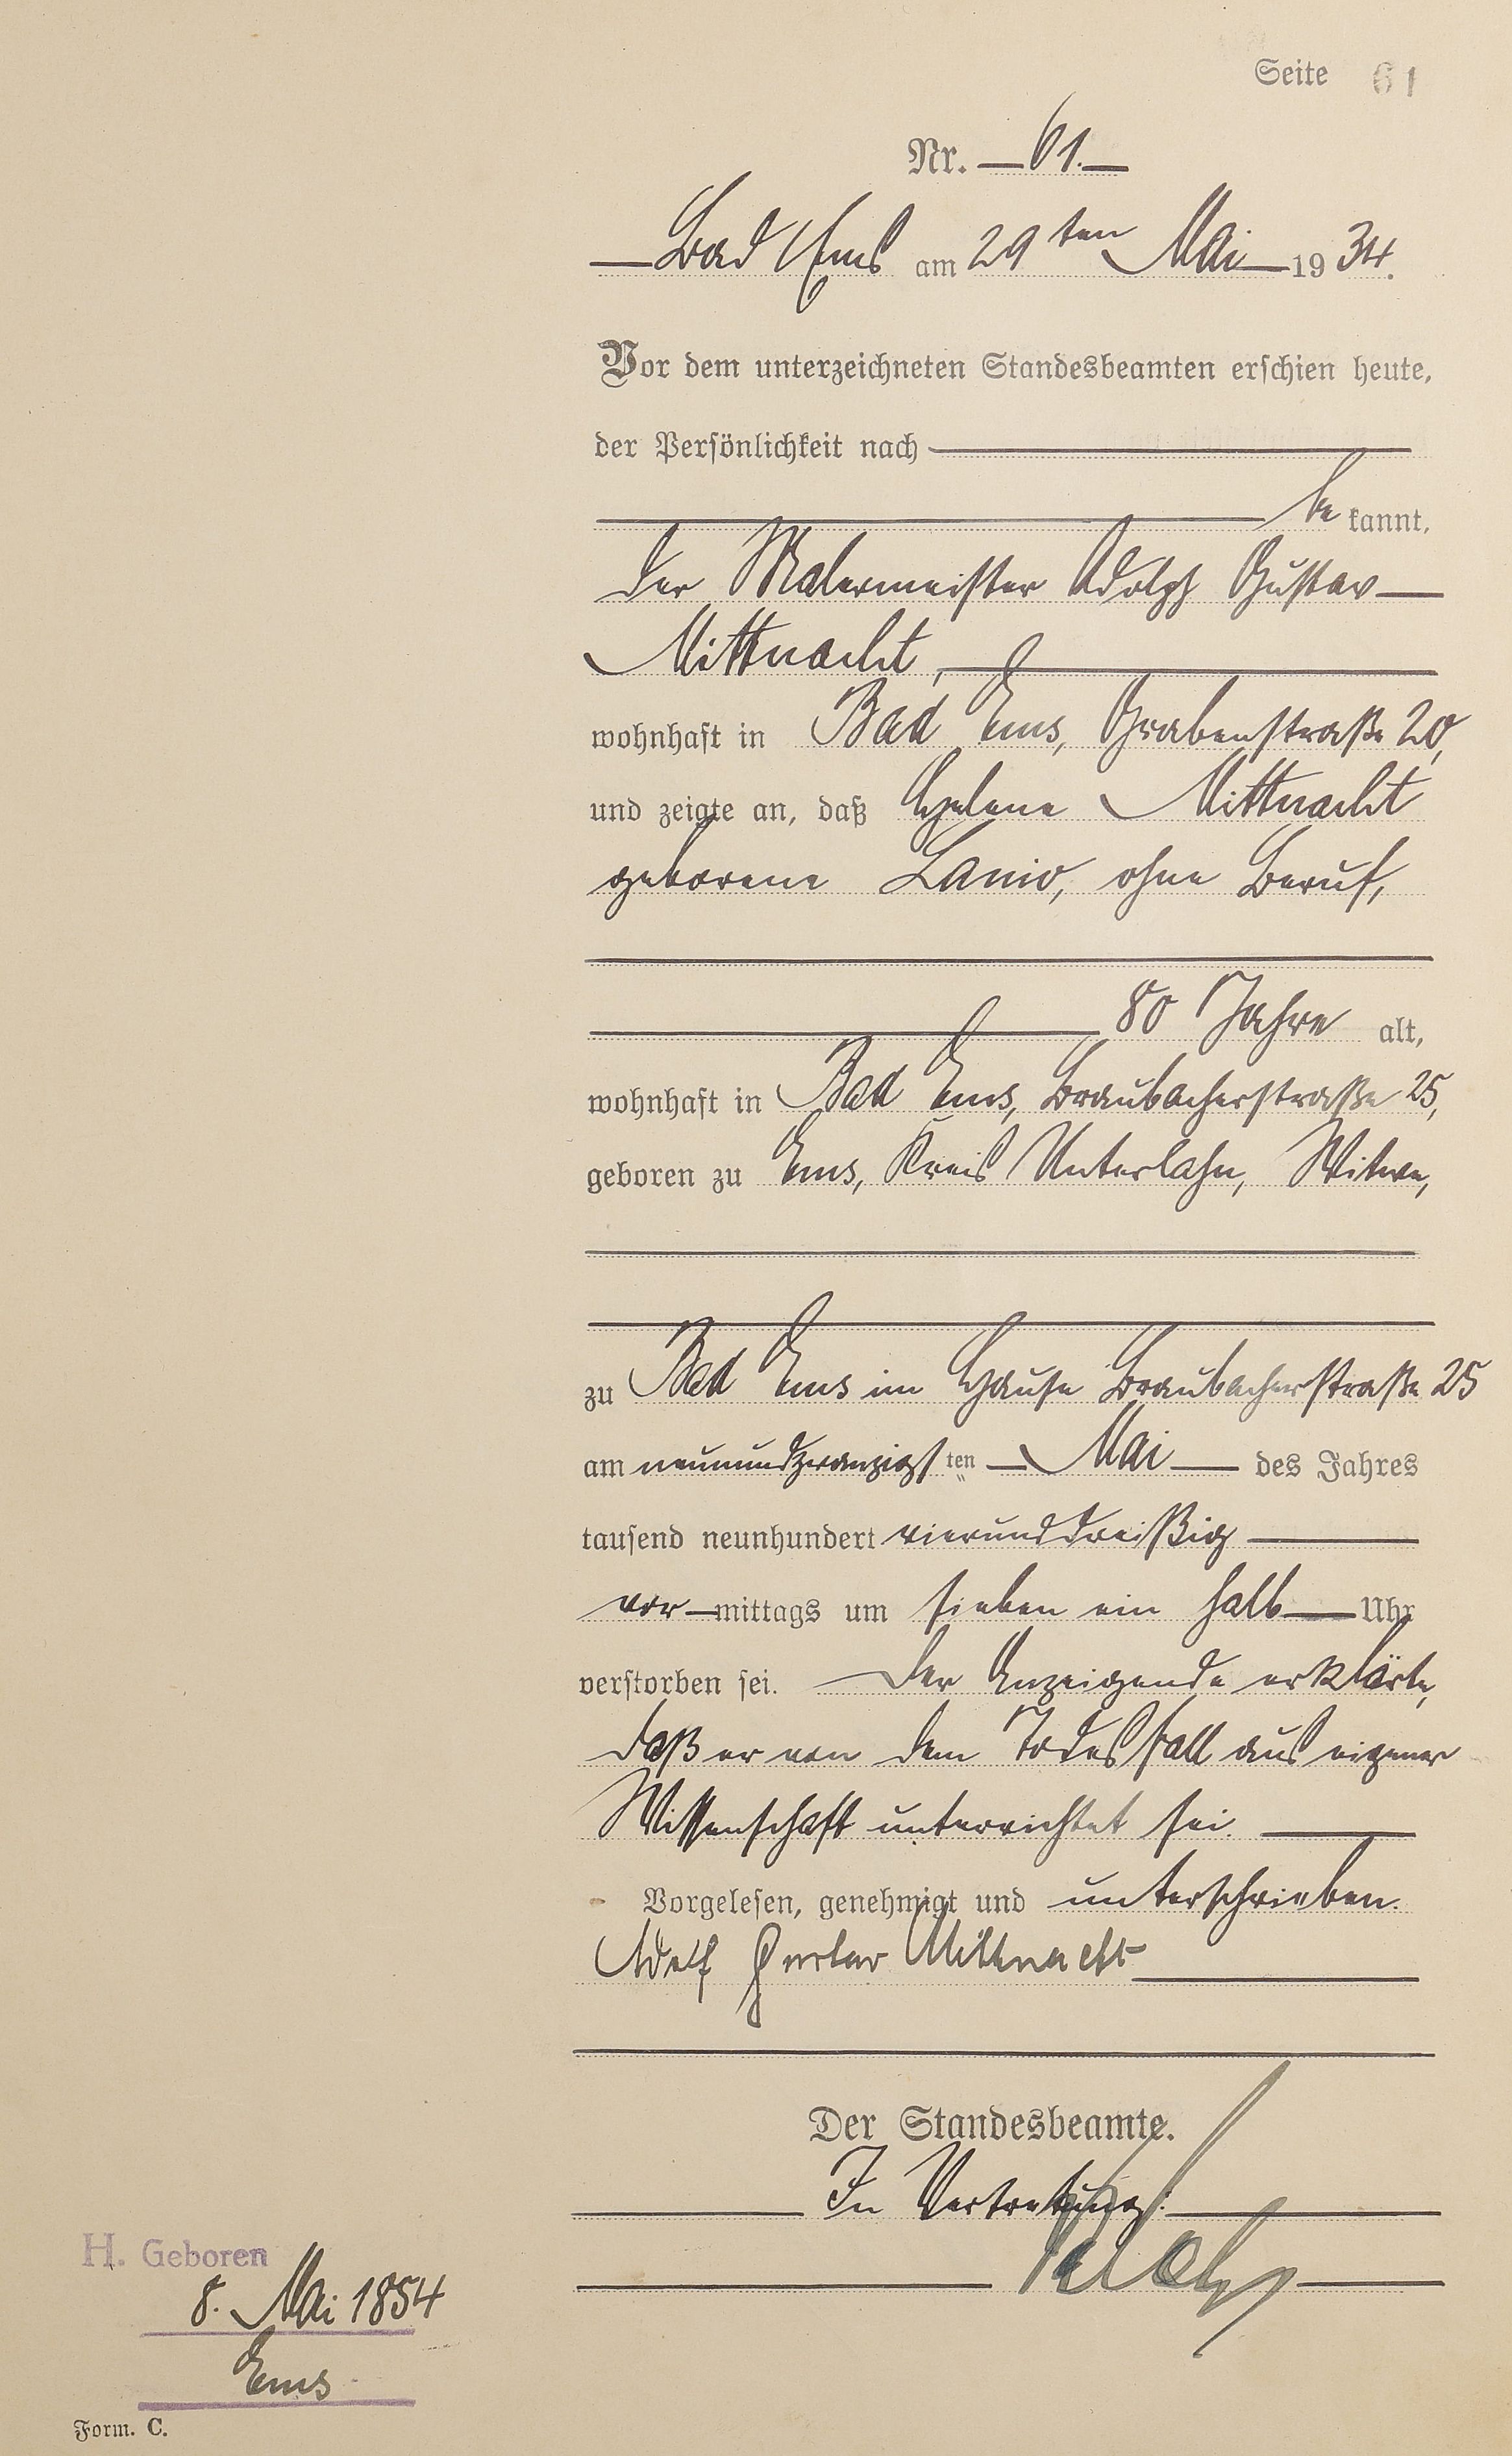 Seite 61
Nr. 61.
Bad Ems am 29ten Mai 1934.
Vor dem unterzeichneten Standesbeamten erschien heute,
der Persönlichkeit nach
be kannt,
der Malermeister Adolph Gustav
Mittnacht,
wohnhaft in Bad Ems, Grabenstraße 20,
und zeigte an, daß Helene Mittnacht
geborene Lanio, ohne Beruf,
80 Jahre alt,
wohnhaft in Bad Ems, Braubacherstraße 25,
geboren zu Ems, Kreis Unterlahn, Witwe,
zu Bad Ems im Hause Braubacherstraße 25
am neunundzwanzigsten Mai des Jahres
tausend neunhundert vierunddreißig
vor mittags um sieben ein halb Uhr
verstorben sei. Der Anzeigende erklärte,
daß er von dem Todesfall aus eigener
Wissenschaft unterrichtet sei.
Vorgelesen, genehmigt und unterschrieben.
Adolf Gustav Mittnacht
Der Standesbeamte.
In Vertretung:
H. Geboren
8. Mai 1854
Ems
Form. C.